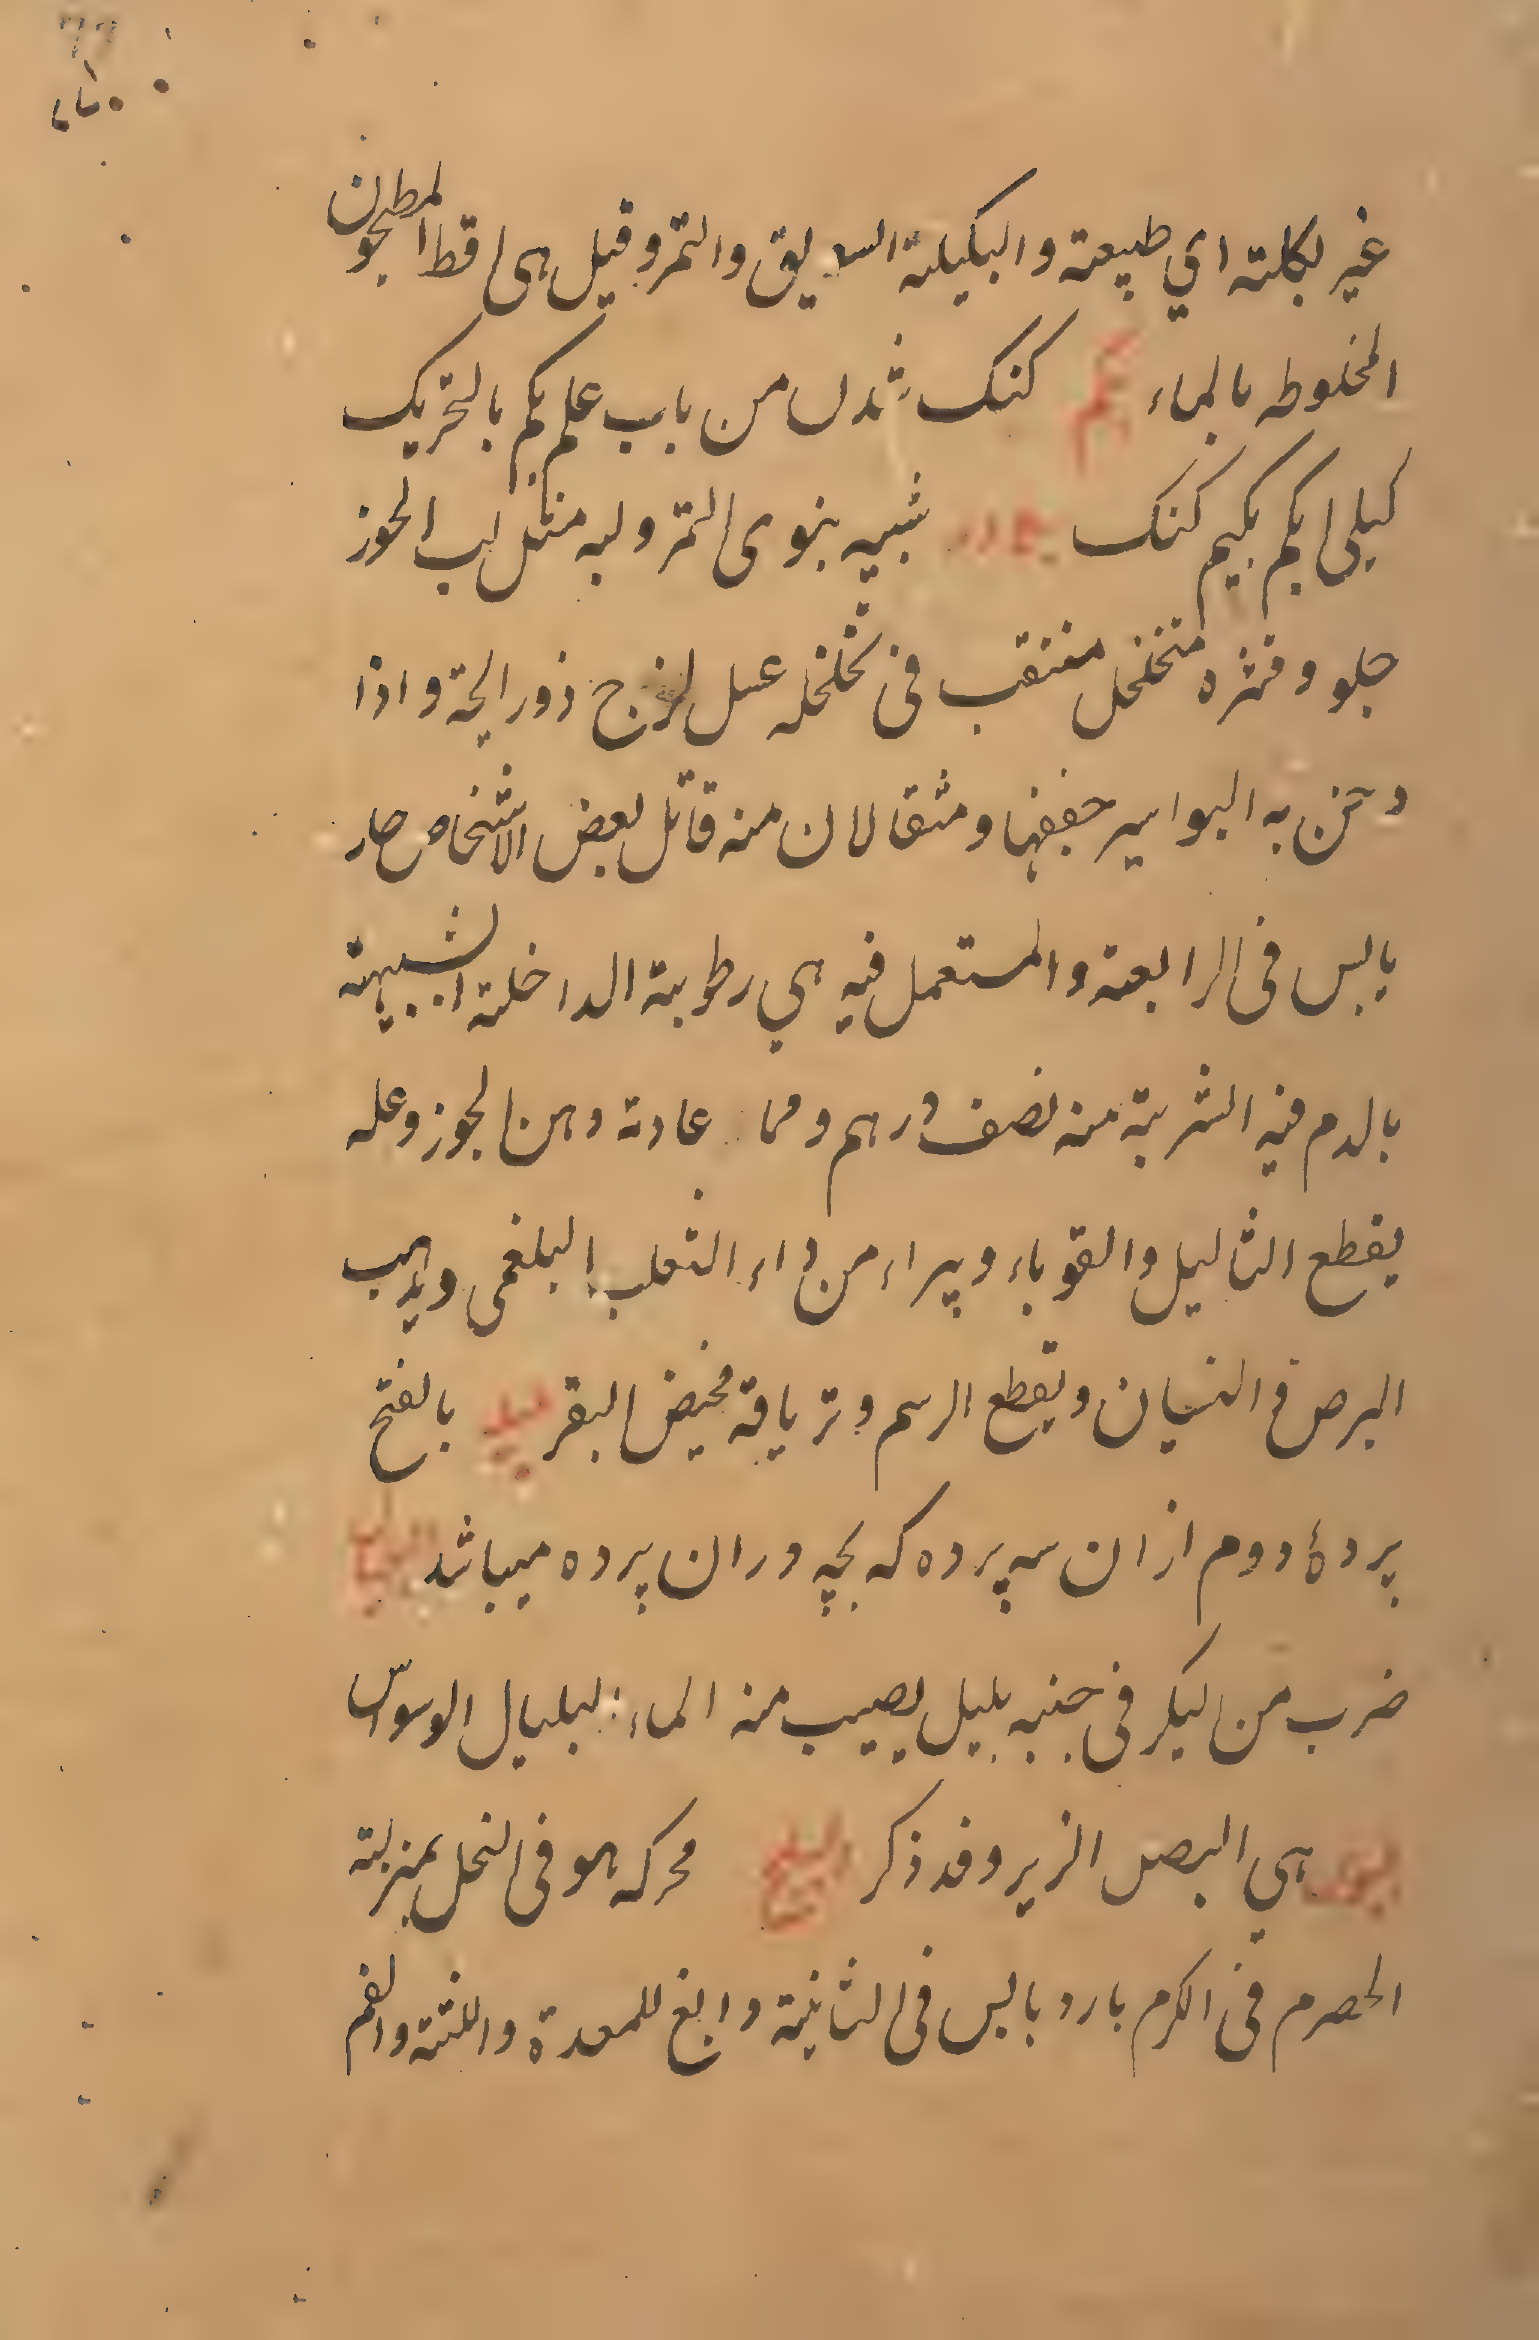 غیر بکلته ای طبیعته والبکیلة السویق والتمر وقیل هی اقط المطحون
المخلوطه بالماء بکم کنک شدن من باب علم بکم بالتحریک
کیلی ابکم بکیم کنک شبیه بنوی التمر ولبه مثل لب الجوز
حلو وقشره متخلخل منتقب فی تخلخله عسل لزج ذو رایحة واذا
دخن به البواسیر جففها ومثقالان منه قاتل بعض الاشخاص حار
یابس فی الرابعة والمستعمل فیه هی رطوبة الداخلة الشبیهة
بالدم فیه الشربة منه نصف درهم ومما عادة دهن الجوز وعله
یقطع الثالیل والقوباء ویبراء من داء الثعلب البلغمی ویذهب
البرص والنسیان ویقطع الرسم وتریاقه مخیض البقر بالفتح
پردهٔ دوم ازان سه پرده که بچه دران پرده میباشد
ضرب من لیکر فی جنبه بلیل یصیب منه الماء البلبال الوسواس
هی البصل الزیر وقد ذکر البلح محرکه هو فی النخل بمنزلة
الحصرم فی الکرم بارد یابس فی الثانیة دابغ للمعدة واللثة والفم